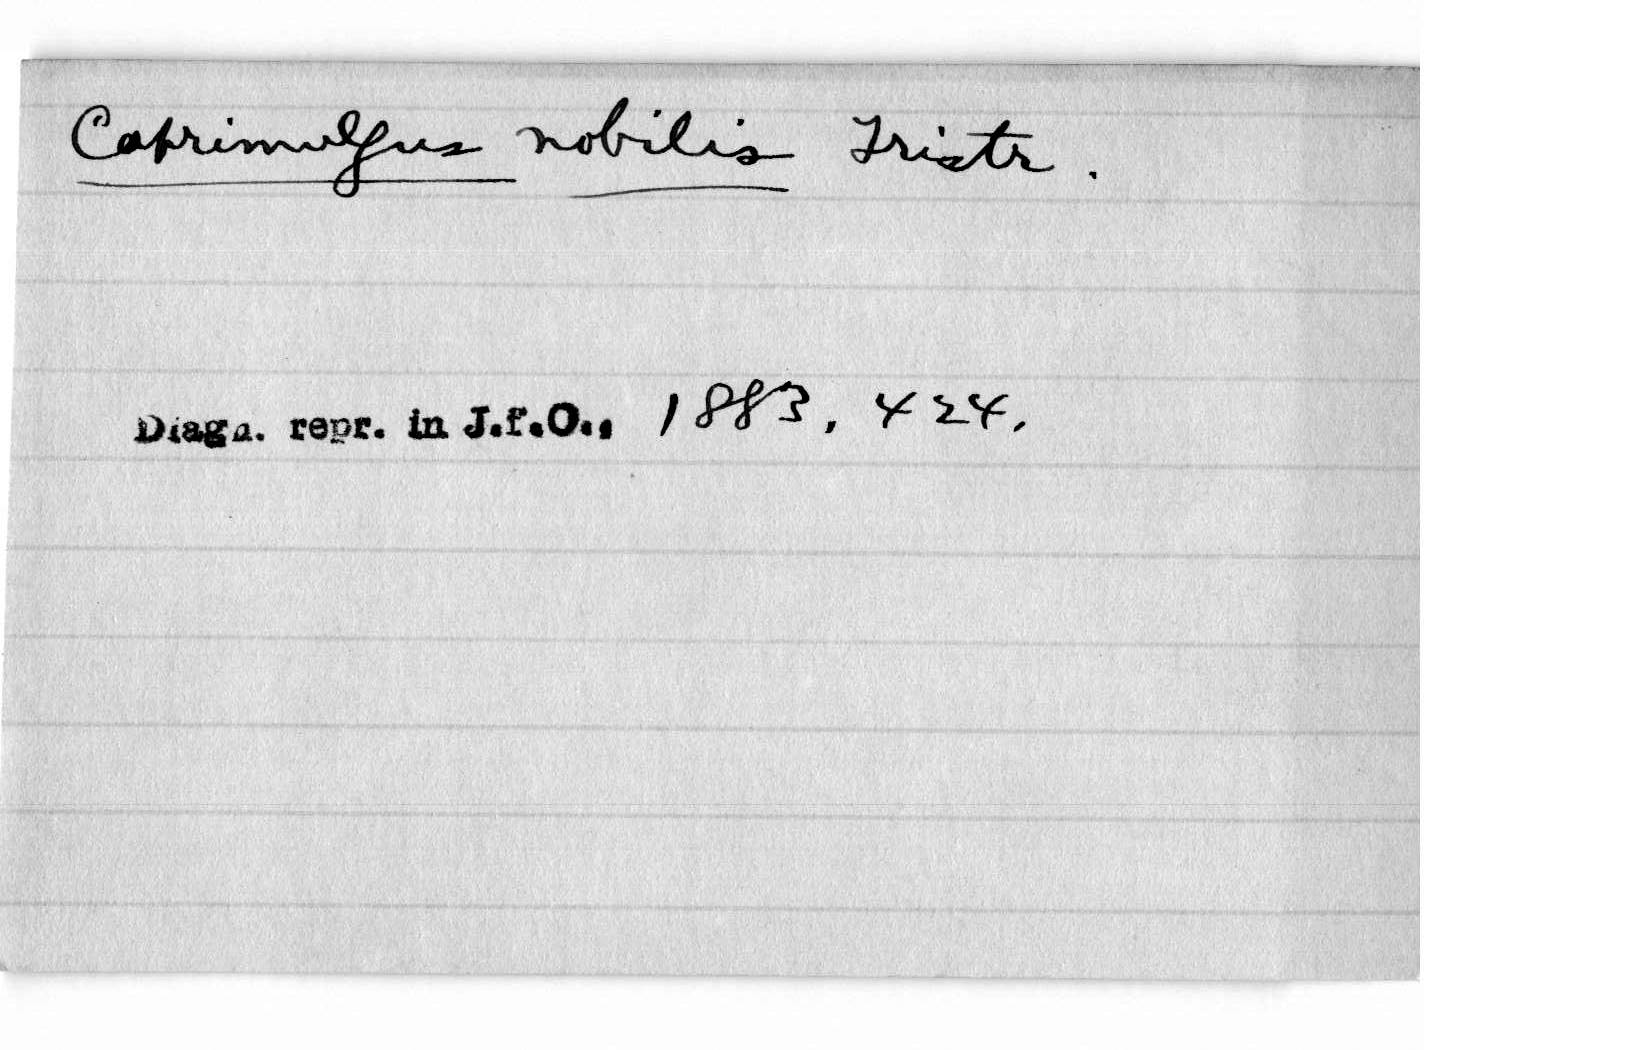 Caprimulgus nobilis Tristr.
Diagn. repr. in J.f.O., 1883, 424.